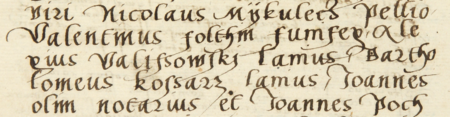 viri Nicolaus Mÿkulecz Pellio
Valentinus folthin sumsep Ale
xius Valissowski lamus, Bartho
lomeus kossarz lamus, Joannes
olim notarius et Joannes Poch